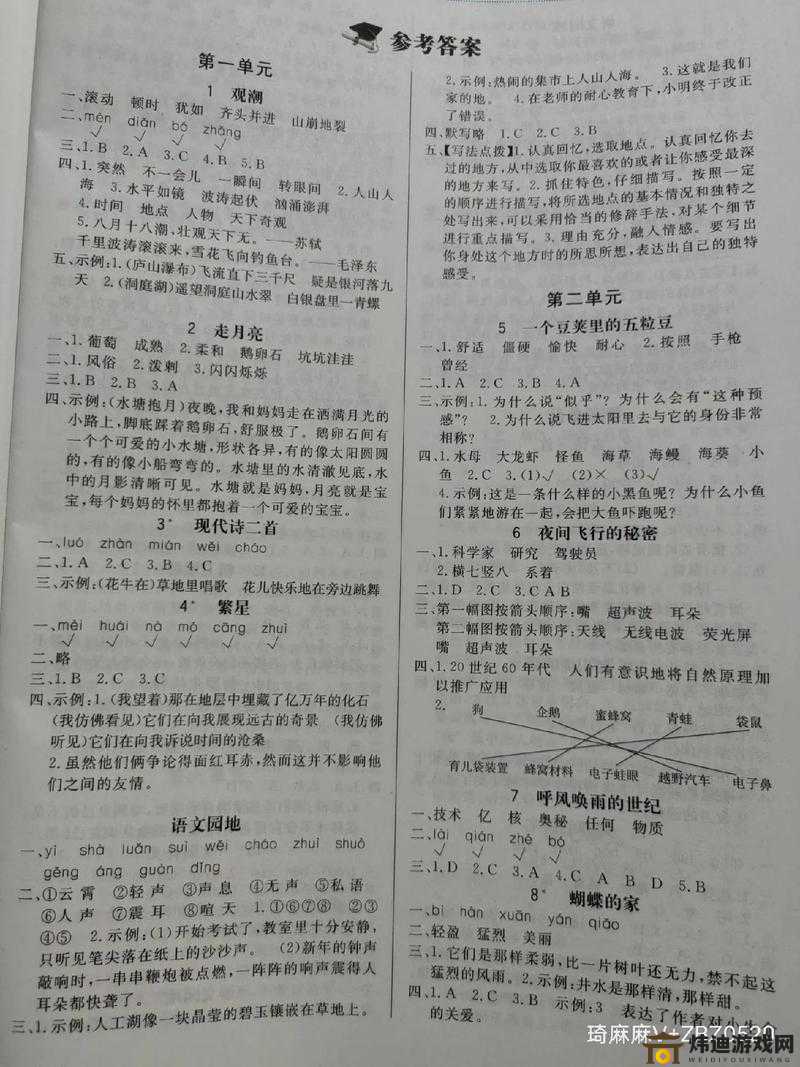 参考答案
第一单元
1 观潮
一、滚动 顿时 犹如 齐头并进 山崩地裂
二、mén diān bó zhǎng
√ √ √ √
三、1.B 2.A 3.C 4.B 5.B
四、1.突然 不一会儿 一瞬间 转眼间 2.人山人
海 3.水平如镜 波涛起伏 汹涌澎湃
4.时间 地点 人物 天下奇观
5.八月十八潮,壮观天下无。——苏轼
千里波涛滚滚来,雪花飞向钓鱼台。——毛泽东
五、示例:1.(庐山瀑布)飞流直下三千尺 疑是银河落九
天 2.(洞庭湖)遥望洞庭山水翠 白银盘里一青螺
2 走月亮
一、1.葡萄 成熟 2.柔和 鹅卵石 坑坑洼洼
二、1.风俗 2.泼剌 3.闪闪烁烁
三、1.B 2.B 3.A
四、示例:(水塘抱月)夜晚,我和妈妈走在洒满月光的
小路上,脚底踩着鹅卵石,舒服极了。鹅卵石间有
一个个可爱的小水塘,形状各异,有的像太阳圆圆
的,有的像小船弯弯的。水塘里的水清澈见底,水
中的月影清晰可见。水塘就是妈妈,月亮就是宝
宝,每个妈妈的怀里都抱着一个可爱的宝宝。
3* 现代诗二首
一、luó zhàn mián wěi cháo
二、1.A 2.C 3.B 4.C
三、示例:(花牛在)草地里唱歌 花儿快乐地在旁边跳舞
4* 繁星
一、měi huái nà mó cāng zhuì
√ √ √ √ √ √
二、略
三、1.B 2.C 3.C
四、示例:1.(我望着)那在地层中埋藏了亿万年的化石
(我仿佛看见)它们在向我展现远古的奇景 (我仿佛
听见)它们在向我诉说时间的沧桑
2.虽然他们俩争论得面红耳赤,然而这并不影响他
们之间的友情。
语文园地
一、yí shà luǎn suì wěi cháo zhuì shuò
gěng áng guàn dǐng
二、①云霄 ②轻声 ③声息 ④无声 ⑤私语
⑥人声 ⑦震耳 ⑧喧天 1.①⑥⑦⑧ ②③
④⑤ 2.示例:(1)开始考试了,教室里十分安静,
只听见笔尖落在纸上的沙沙声。 (2)新年的钟声
敲响时,一串串鞭炮被点燃,一阵阵的响声震得人
耳朵都快聋了。
三、1.示例:人工湖像一块晶莹的碧玉镶嵌在草地上。
2.示例:热闹的集市上人山人海。 3.这就是我们
家的地。 4.在老师的耐心教育下,小明终于改正
了错误。
四、默写略 1.C 2.C 3.B
五、【写法点拨】1.认真回忆,选取地点。认真回忆你去
过的地方,从中选取你最喜欢的或者让你感受最深
的地方来写。2.抓住特色,仔细描写。按照一定
的顺序进行描写,将所选地点的基本情况和独特之
处写出来,可以采用恰当的修辞手法,对某个细节
进行重点描写。3.理由充分,融入情感。要写出
你身处这个地方时的所思所想,表达出自己的独特
感受。
第二单元
5 一个豆荚里的五粒豆
一、1.舒适 僵硬 愉快 耐心 2.按照 手枪
曾经
二、1.A 2.C 3.B 4.A
三、示例:1.为什么说“似乎”?为什么会有“这种预
感”? 2.为什么说飞进太阳里去与它的身份非常
相称?
四、1.水母 大龙虾 怪鱼 海草 海鳗 海葵 小
鱼 2.C 3.(1)√ (2)× (3)√
4.示例:这是一条什么样的小黑鱼呢?为什么小鱼
们紧紧地游在一起,会把大鱼吓跑呢?
6 夜间飞行的秘密
一、1.科学家 研究 驾驶员
2.横七竖八 系着
二、1.D 2.C 3.C A B
三、第一幅图按箭头顺序:嘴 超声波 耳朵
第二幅图按箭头顺序:天线 无线电波 荧光屏
嘴 超声波 耳朵
四、1.20世纪60年代 人们有意识地将自然原理加
以推广应用
2.
狗 企鹅 蜜蜂窝 青蛙 袋鼠
育儿袋装置 蜂窝材料 电子蛙眼 越野汽车 电子鼻
7 呼风唤雨的世纪
一、技术 亿 核 奥秘 任何 物质
二、lài qián zhé bó
√ √ √ √
三、1.D 2.C 3.A 4.C A B D 5.B
8* 蝴蝶的家
一、bì hàn xuān yán qiāo
二、轻盈 猛烈 美丽
三、1.它们是那样柔弱,比一片树叶还无力,禁不起这
猛烈的风雨。2.示例:井水是那样清,那样甜。
四、1.A 2.B 3.C 示例:3 表达了作者对小生命
的关爱。
琦麻麻V+ZBZ0520
炜迪游戏网